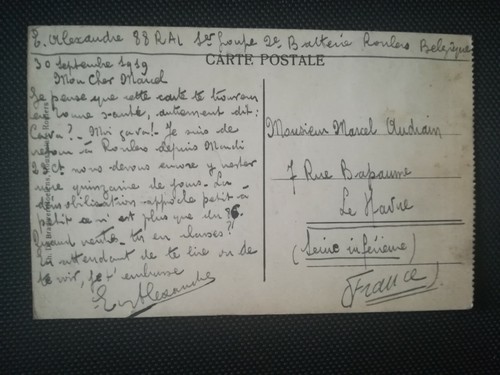 E. Alexandre 88 RAL 1er Groupe 2e Batterie Roulers Belgique
CARTE POSTALE
30 septembre 1919
Mon Cher Marcel
Je pense que cette carte te trouvera
en bonne santé, autrement dit:
Cava? - Moi ça va! Je suis de
retour à Roulers depuis Mardi
23 Ct nous devons encore y rester
une quinzaine de jours. La
démobilisation approche petit à
petit ce n'est plus que du 86.
Quand rentre-tu en classes?
En attendant de te lire ou de
te voir, je t'embrasse
E. Alexandre
Monsieur Marcel Audrain
7 Rue Bapaume
Le Havre
(Seine inférieure)
(France)